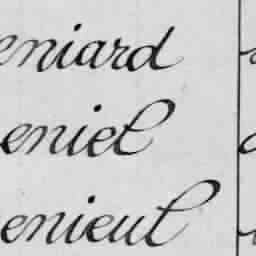 eniard
eniel
enieul